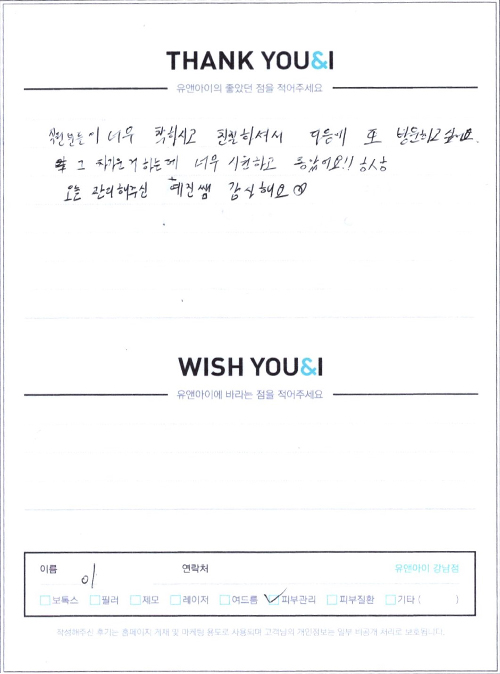 THANK YOU&I
유앤아이의 좋았던 점을 적어주세요
직원분들이 너무 착하시고 친절하셔서 다음에 또 방문하고싶어요.
그 차가운거 하는게 너무 시원하고 좋았어요!! 항상
오늘 관리해주신 예진쌤 감사해요
WISH YOU&I
유앤아이에 바라는 점을 적어주세요
이름 이 연락처 유앤아이 강남점
보톡스 필러 제모 레이저 여드름 피부관리 피부질환 기타 ( )
작성해주신 후기는 홈페이지 게재 및 마케팅 용도로 사용되며 고객님의 개인정보는 일부 비공개 처리로 보호됩니다.